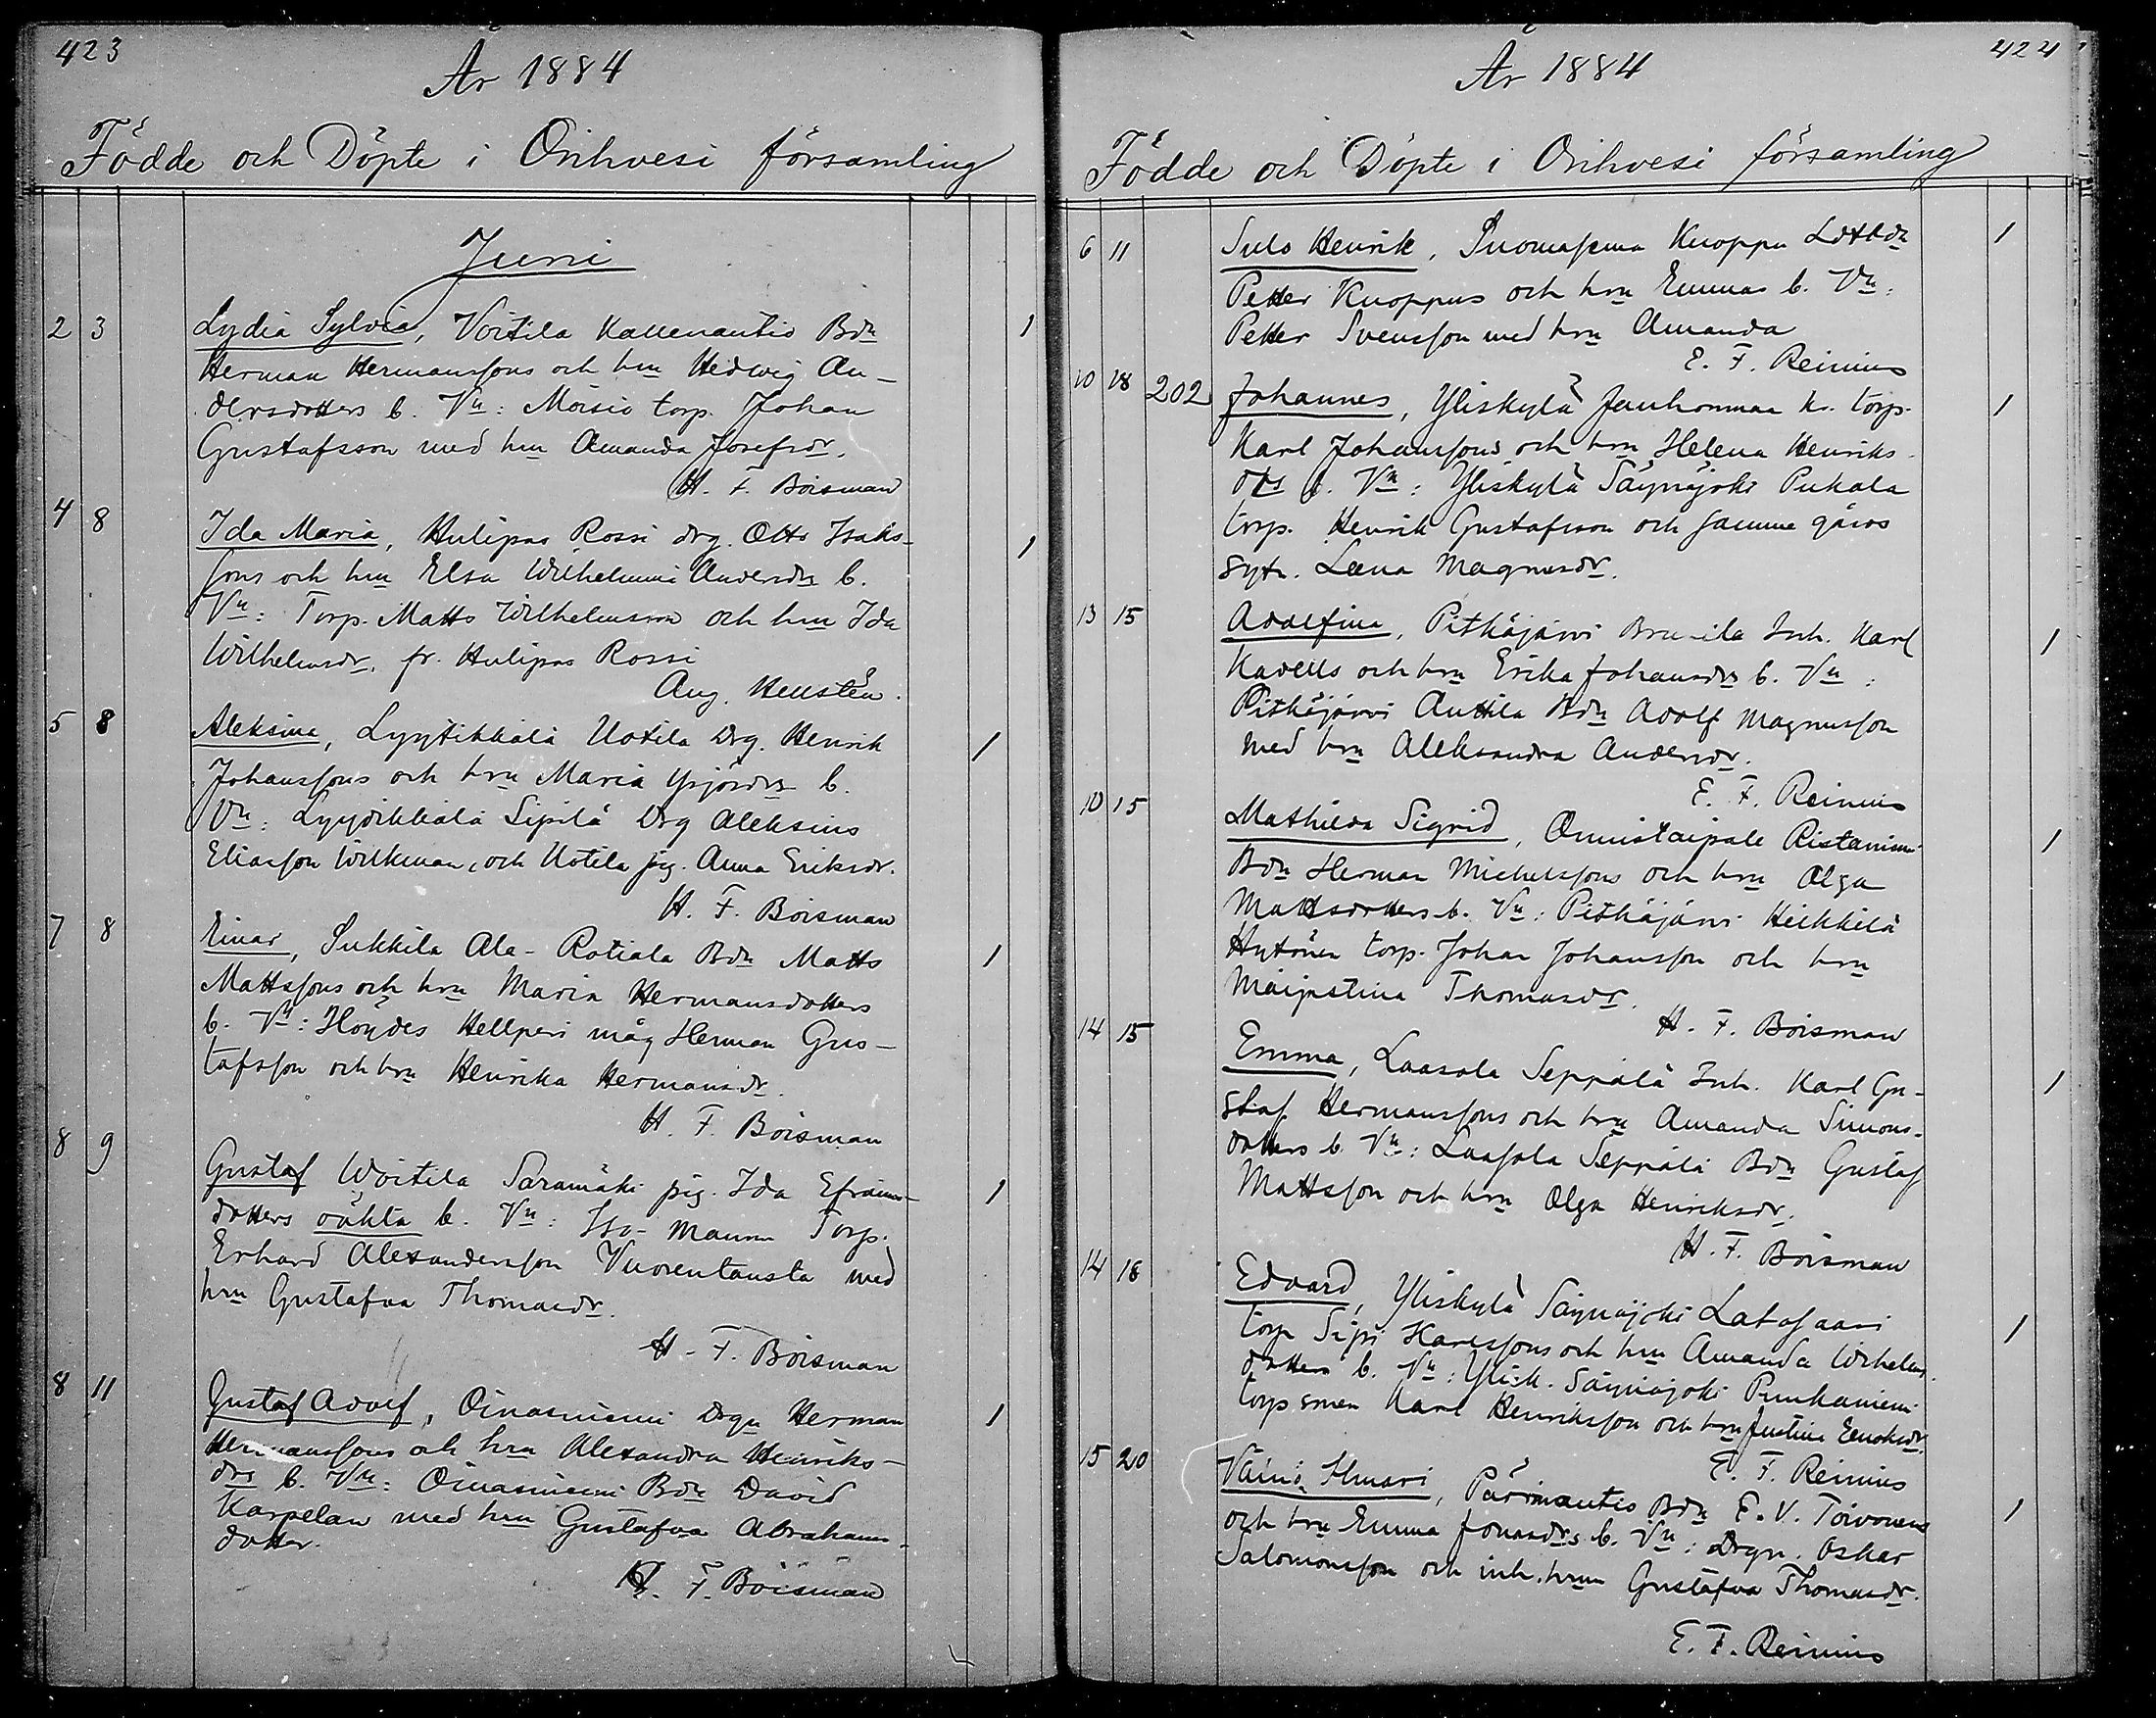 423
År 1884
Födde och Döpte i Orihvesi församling
Juni
2 3 Lydia Sylvia, Voitila Kallenautio Bdn 1
Herman Hermanssons och hru Hedvig An-
dersdotters b. Vn: Moisio torp. Johan
Gustafsson med hru Amanda Josefsdr.
H. F. Boisman
4 8 Ida Maria, Hulipas Rossi drg. Otto Isaks- 1
sons och hru Elsa Wilhelmina Andersdrs b.
Vn: Torp. Matts Wilhelmsson och hru Ida
Wilhelmsdr. fr. Hulipas Rossi
Aug. Hellstén.
5 8 Aleksina, Lyytikkälä Uotila Drg. Henrik 1
Johanssons och hru Maria Yrjösdrs b.
Vn: Lyydikkälä Sipilä Drg Aleksius
Eliasson Wilkman, och Uotila pig. Anna Eriksdr.
H. F. Boisman
7 8 Einar, Sukkila Ala-Rotiala Bdn Matts 1
Mattssons och hru Maria Hermansdotters
b. Vn: Höydes Hellperi måg Herman Gus-
tafsson och hru Henrika Hermansdr.
H. F. Boisman
8 9 Gustaf Woitila Saramäki pig. Ida Efraims- 1
dotters oäkta b. Vn: Iso-Maunu Torp.
Erhard Alexandersson Vuorentausta med
hru Gustafva Thomasdr.
H. F. Boisman
8 11 Gustaf Adolf, Oinasniemi Drgn Herman 1
Hermanssons och hru Alexandra Henriks-
drs b. Vn: Oinasniemi Bdn David
Karpelan med hru Gustafva Abrahams-
dotter.
H. F. Boisman
424
År 1884
Födde och Döpte i Orihvesi församling
6 11 Sulo Henrik, Suomasema Knoppu 1
Petter Knoppus och hru Emmas b. Vn:
Petter Svensson med hru Amanda
E. F. Reinius
10 18 202 Johannes, Yliskylä Jauhonmaa kr. torp. 1
Karl Johanssons och hru Helena Henriks-
drs b. Vn: Yliskylä Säynäjoki Pukala
torp. Henrik Gustafsson och samma gårds
syt. Lena Magnusdr.
13 15 Adolfina, Pitkäjärvi Inh. Karl 1
Kavells och hru Erika Johansdrs b. Vn:
Pitkäjärvi Anttila Bdn Adolf Magnusson
med hru Aleksandra Andersdr.
E. F. Reinius
10 15 Mathilda Sigrid, Onnistaipale Ristaniemi 1
Bdn Herman Michelssons och hru Olga
Mattsdotters b. Vn: Pitkäjärvi Heikkilä
Hytönen torp. Johan Johansson och hru
Majastina Thomasdr.
H. F. Boisman
14 15 Emma, Laasola Seppälä Inh. Karl Gu- 1
staf Hermanssons och hru Amanda Simons-
dotters b. Vn: Laasola Seppälä Bdn Gustaf
Mattsson och hru Olga Henriksdr.
H. F. Boisman
14 18 Edvard, Yliskylä Säynäjoki Latosaari 1
torp Sipi Karlssons och hru Amanda Wilhelms-
dotters b. Vn: Ylisk. Säynäjoki Punkaniemi
torpsmen Karl Henriksson och hru Justina Enoksdr.
E. F. Reinius
15 20 Väinö Ilmari, Pärinautio Bdn E. V. Toivonens 1
och hru Emma Jonasdrs b. Vn: Drgn. Oskar
Salomonsson och inh. hrun Gustafva Thomasdr.
E. F. Reinius